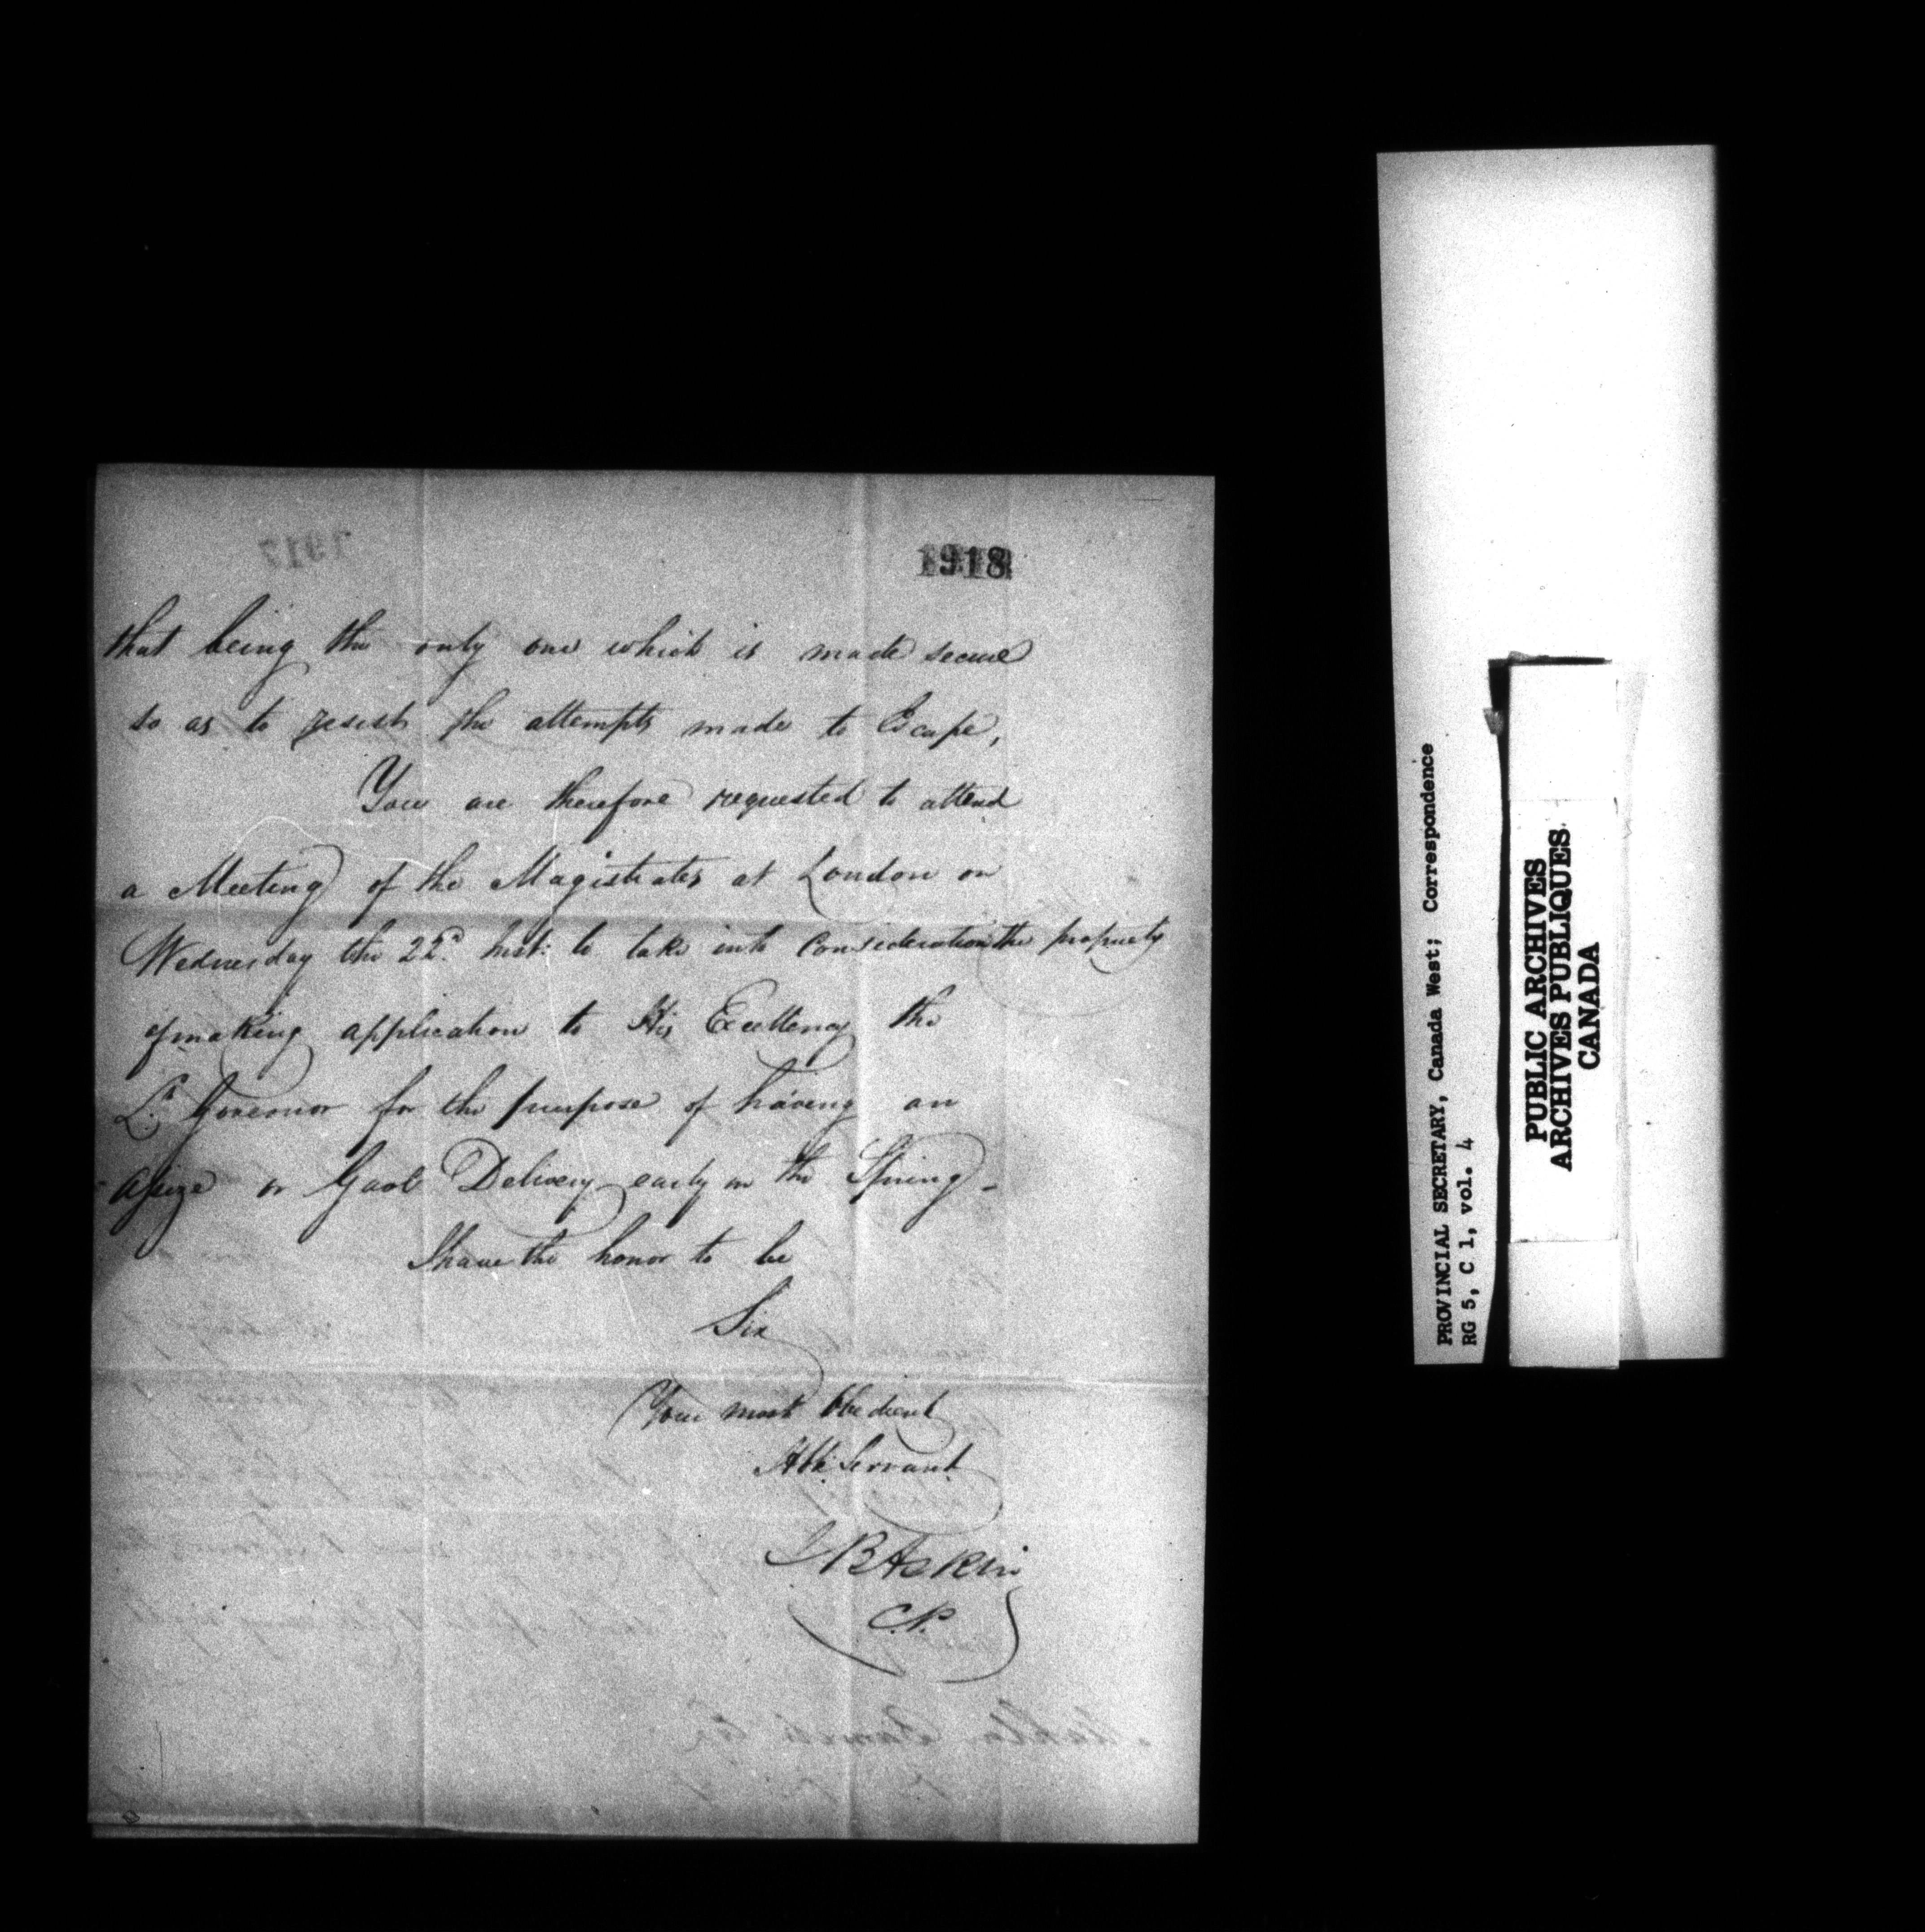 1918
that being the only one which is made secure
so as to resist the attempts made to Escape,
You are therefore requested to attend
a Meeting of the Magistrates at London on
Wednesday the 22d. Inst: to take into Consideration the propriety
of making application to His Excellency the
Lt. Governor for the purpose of having an
Assize or Gaol Delivery early in the Spring -
I have the honor to be
Sir
Your most Obedient
Hble Servant
J B Askin
C.P.
PROVINCIAL SECRETARY, Canada West; Correspondence
RG 5, C 1, vol. 4
PUBLIC ARCHIVES
ARCHIVES PUBLIQUES
CANADA